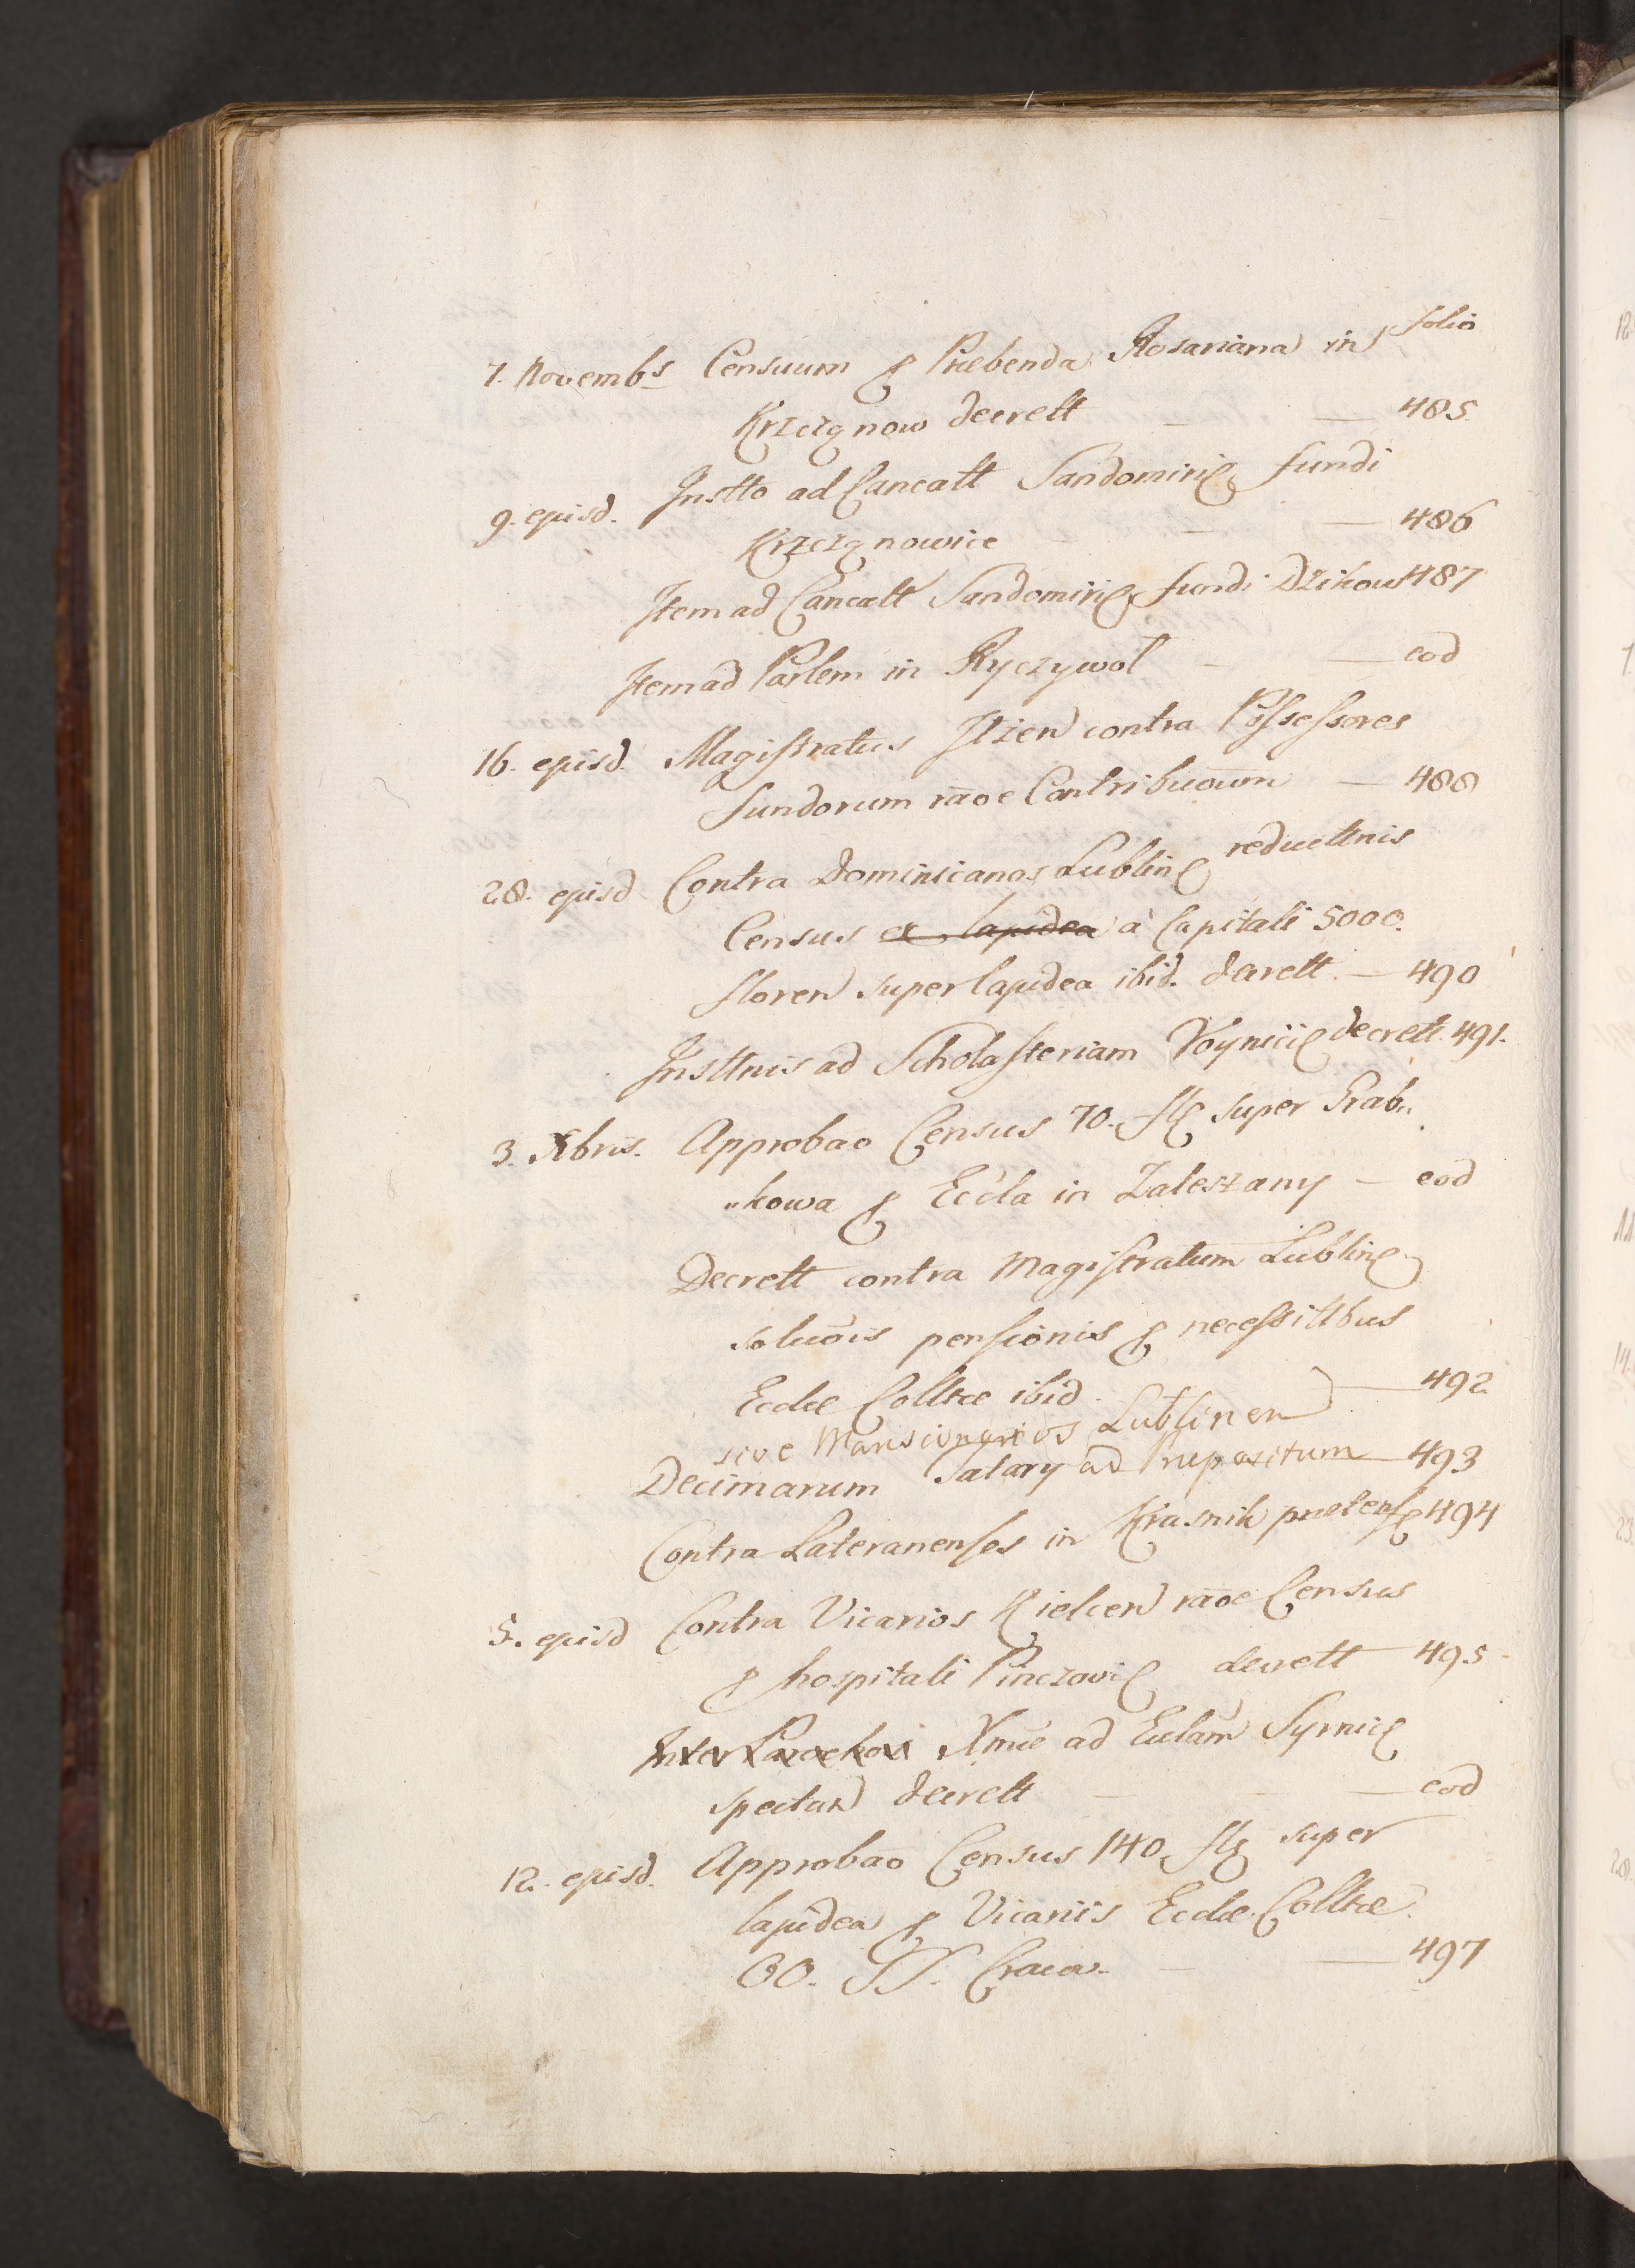 folio
7. Novembs Censuum p Præbenda Rosariana in
Krzczgnow decrett — 485.
9. episd. Instto ad Cancatt Sandomirie fundi
Krzczgnowice — 486
Item ad Cancatt Sandomirie fundi Dzikow 487
Item ad Parlem in Ryczywol — eod
16. episd. Magistratus Ilzen contra Possessores
fundorum raoe Contribuoum — 488
28. episd Contra Dominicanos Lubline reducttnis
Census ex lapidea à Capitali 5000.
floren super lapidea ibid. decrett — 490
Insttnis ad Scholasteriam Voynicie decrett. 491.
3. Xbris. Approbao Census 70. fl super Grab„
„kowa p Eccla in Zaleszany — eod
Decrett contra Magistratum Lubline
soluois pensionis p necessittbus
Ecclæ Colltæ ibid. — 492
sive Mansionarios Lublinen
Decimarum Salary ad Præpositum — 493
Contra Lateranenses in Krasnik prætens 494
5. episd Contra Vicarios Kielcen raoe Census
p hospitali Pinczovie decrett 495
Inter Parochos Xmæ ad Eclam Syrnice
spectan decrett — eod
12. episd. Approbao Census 140 fl super
lapidea p Vicariis Ecclæ Colltæ
OO. SS. Cracov. — 497